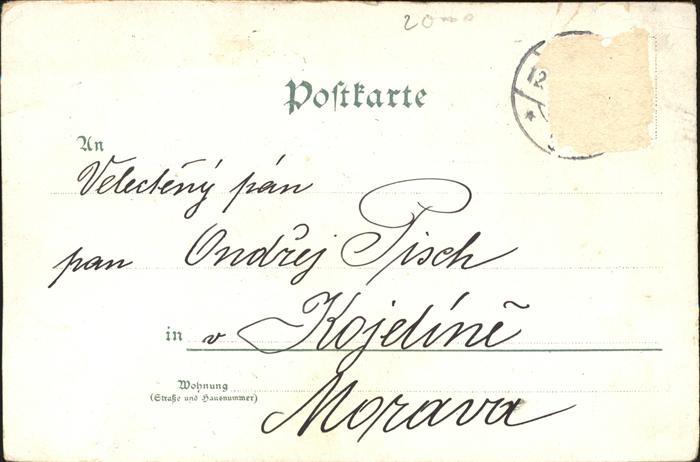 Postkarte
12
An
Velectěný pán
pan Ondřej Pisch
in v Kojetíně
Wohnung
(Straße und Hausnummer)
Morava